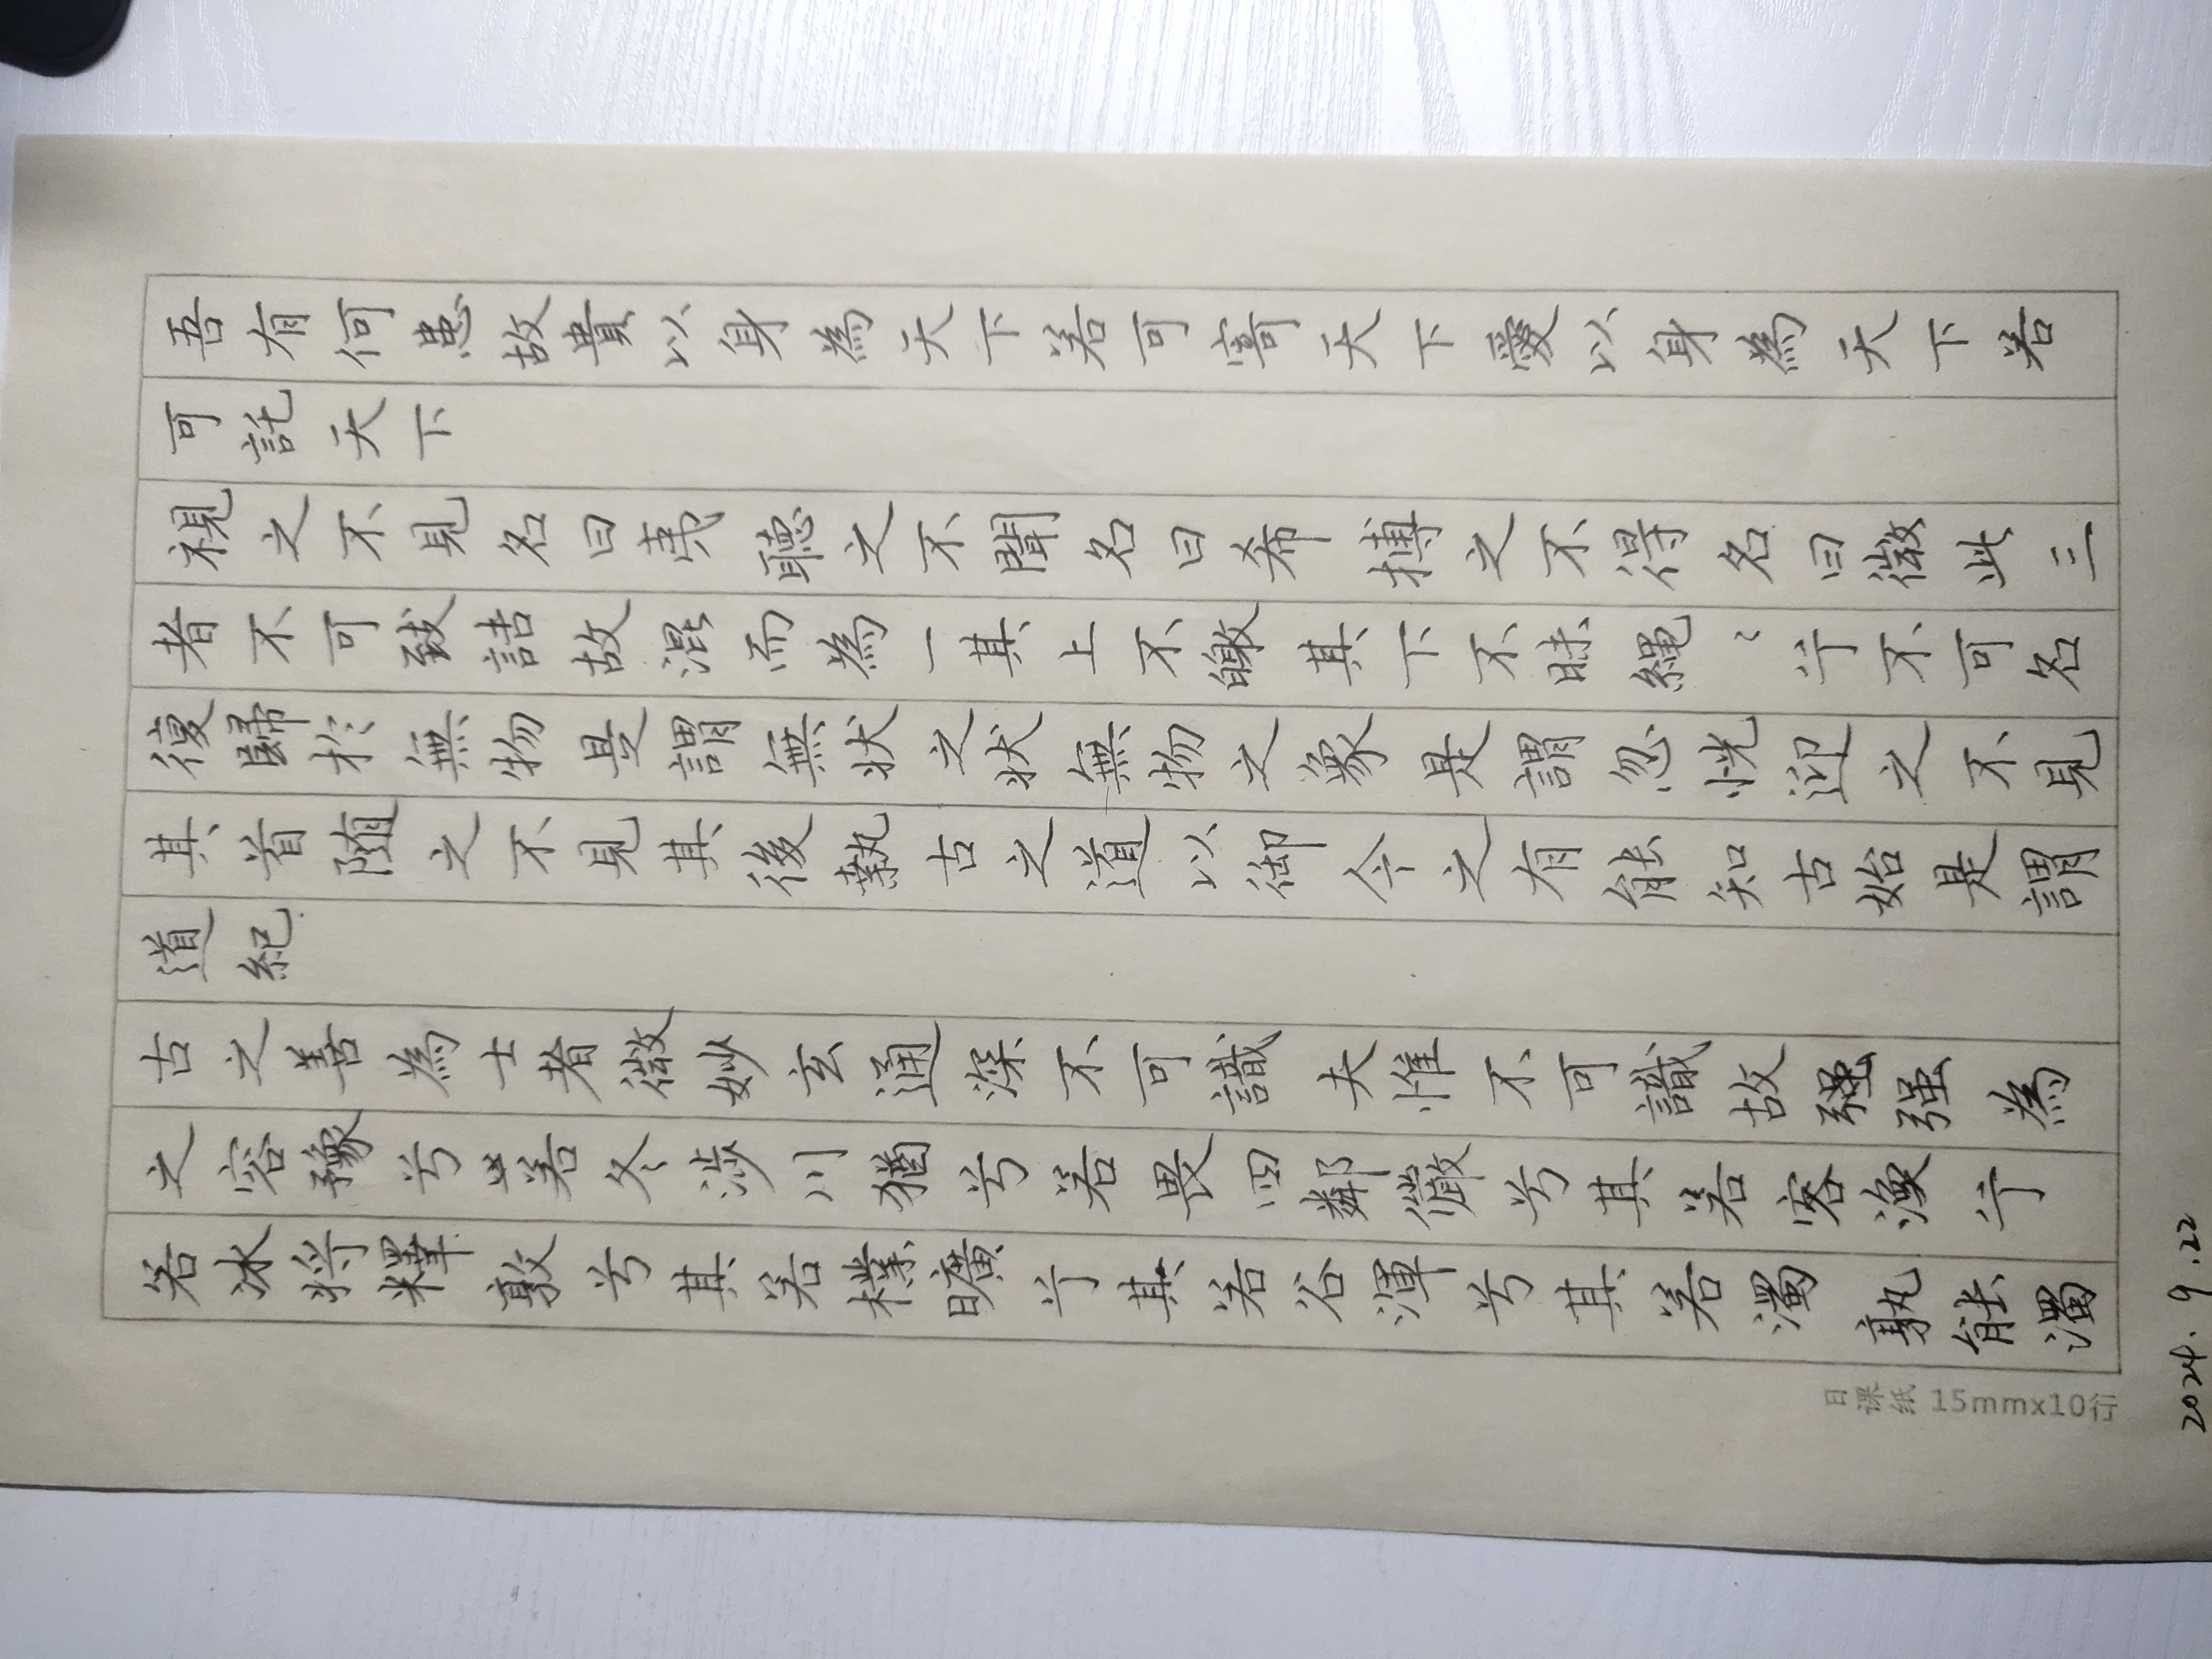 吾有何患故貴以身為天下若可寄天下愛以身為天下若
可託天下
視之不見名曰夷聽之不聞名曰希搏之不得名曰微此三
者不可致詰故混而為一其上不皦其下不昧繩〻兮不可名
復歸於無物是謂無状之状無物之象是謂忽恍迎之不見
其首随之不見其後執古之道以御今之有能知古始是謂
道紀
古之善為士者微妙玄通深不可識夫惟不可識故强强為
之容豫兮若冬涉川猶兮若畏四鄰儼兮其若客渙兮
若冰将釋敦兮其若樸曠兮其若谷渾兮其若濁孰能濁
日课纸 15mmx10行
2024.9.22